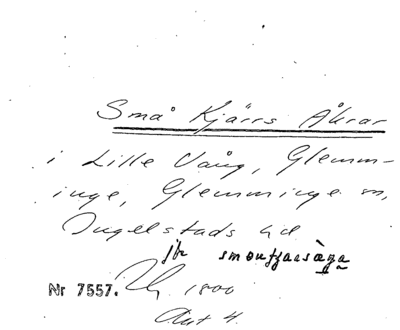 Små Kjärrs Åkrar
i Lille Vång, Glemm-
inge, Glemminge sn,
Ingelstads hd
jfr
Nr 7557. 1800
Akt 4.